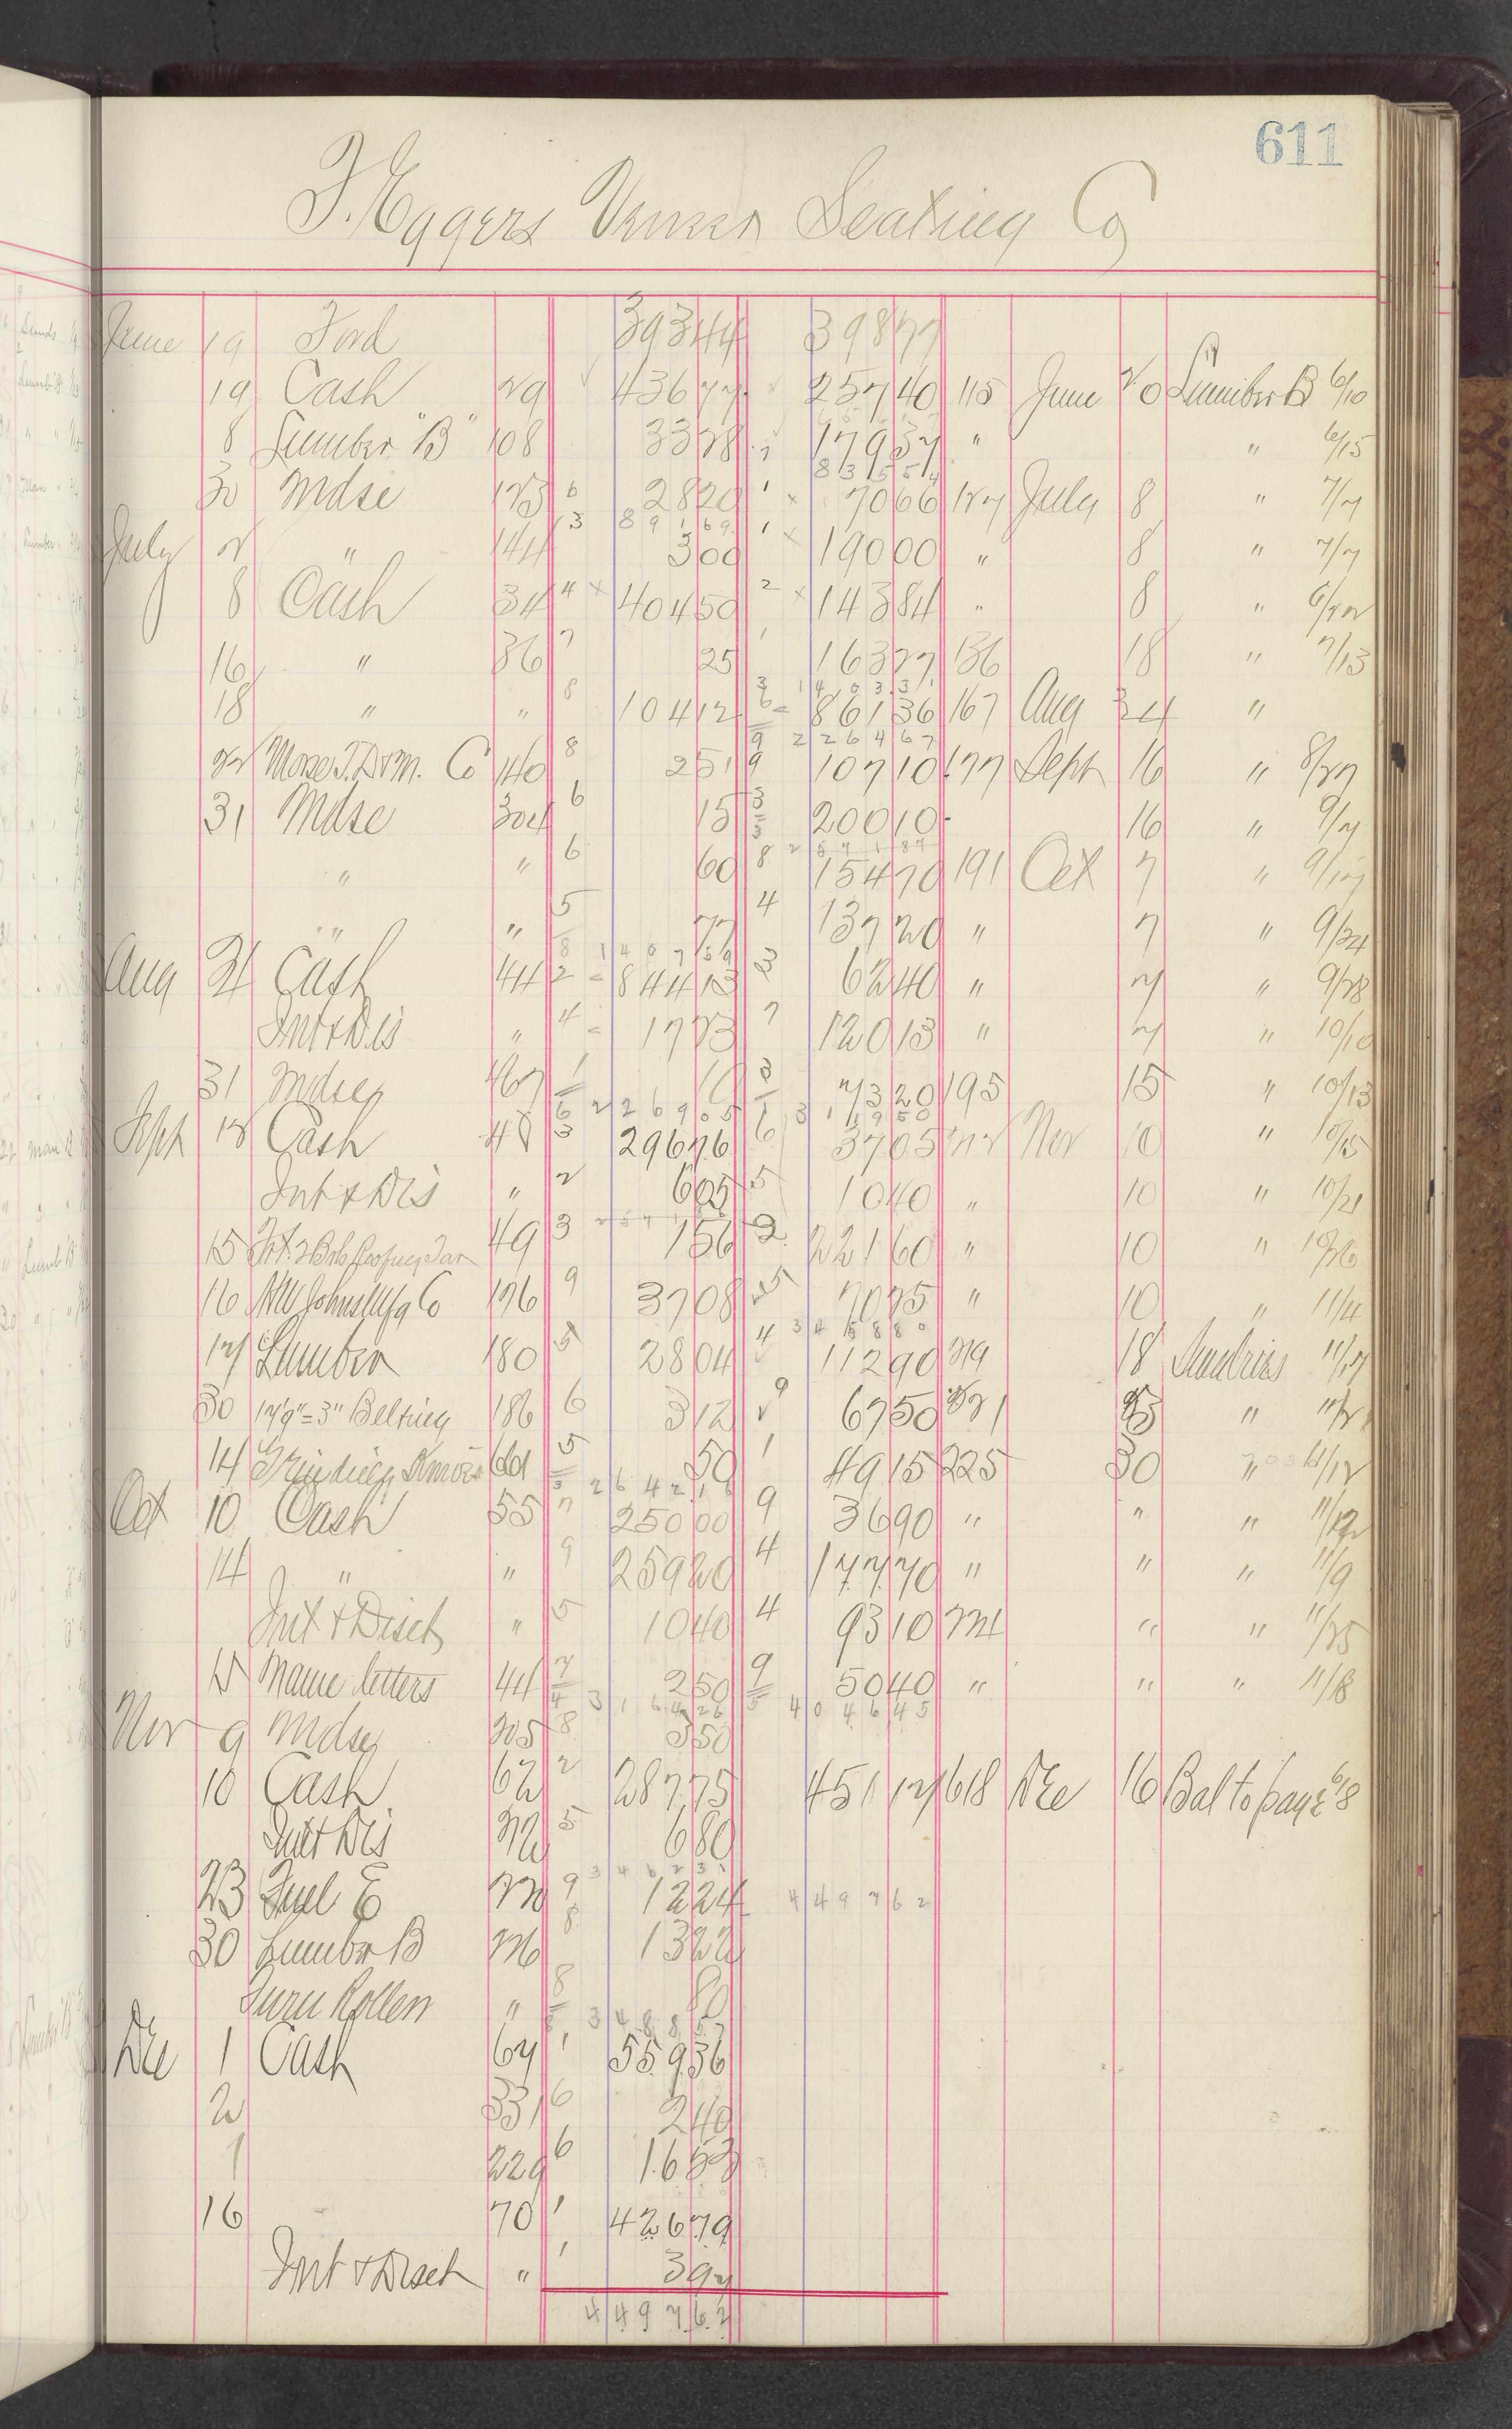 611
F. Eggers Veneer Seating Co
June 19 Ford 393 44 398 77
19 Cash 29 436 77 257 40 115 June 20 Lumber B 6/10
8 Lumber "B" 108 33 78 179 37 " " 6/15
8 3 5 5 4
30 Mdse 123 6 28 20 1 70 66 127 July 8 " 7/7
3 8 9 1 6 9 1
July 2 " 144 3 00 190 00 " 8 " 7/7
8 Cash 34 4 404 50 2 143 84 " 8 " 6/22
16 " 36 7 25 1 163 77 136 18 " 7/13
3 1 4 0 3 3 1
18 " " 8 104 12 6 861 36 167 Aug 24 "
9 2 2 6 4 6 7
22 Morse T. D & M. Co 140 8 2 51 9 107 10 177 Sept 16 " 8/27
31 Mdse 304 6 15 3 200 10 16 " 9/7
" " 6 60 8 154 70 191 Oct 7 " 9/17
" " 5 77 4 137 20 " 7 " 9/24
8 1 4 0 7 5 9
Aug 24 Cash 44 2 844 13 3 62 40 " 7 " 9/28
Int & Dis " 4 17 73 7 120 13 " 7 " 10/10
31 Mdse 167 1 10 3 73 20 195 15 " 10/13
6 2 2 6 9 0 5 1 3 1 1 9 5 0
Sept 12 Cash 48 3 296 76 6 37 05 212 Nov 10 " 10/15
Int & Dis " 2 6 05 5 10 40 " 10 " 10/21
15 Frt. 2 Bbls Roofing Tar 49 3 1 56 2 221 60 " 10 " 10/26
16 AW Johns Mfg Co 176 9 37 08 5 70 75 " 10 " 11/4
4 3 4 5 8 8 0
17 Lumber 180 5 28 04 112 90 219 18 Sundries 11/17
30 17'9"=3" Belting 186 6 3 12 9 67 50 221 23 " 11/21
14 Grinding Knives 661 5 50 1 49 15 225 30 " 11/12
5 2 6 4 2 1 8
Oct 10 Cash 55 7 250 00 9 36 90 " " " 11/12
14 " " 9 259 20 4 177 70 " " " 11/9
Int & Disct " 5 10 40 4 93 10 224 " " 11/25
15 Name letters 44 7 2 50 9 50 40 " " " 11/18
4 3 1 6 4 2 6 5 4 0 4 6 4 5
Nov 9 Mdse 205 8 3 50
10 Cash 62 2 287 75 451 17 618 Dec 16 Bal to page 618
Int & Dis 72 5 6 80
3 4 6 2 3 1
23 Fuel E 220 9 12 24 4 4 9 7 6 2
30 Lumber B 226 8 13 22
Turn Rollers " 8 80
8 3 4 8 8 5 7
Dec 1 Cash 67 1 559 36
2 331 6 2 40
1 229 6 16 53
16 70 1 426 79
Int & Disct " 1 3 97
4 4 9 7 6 2